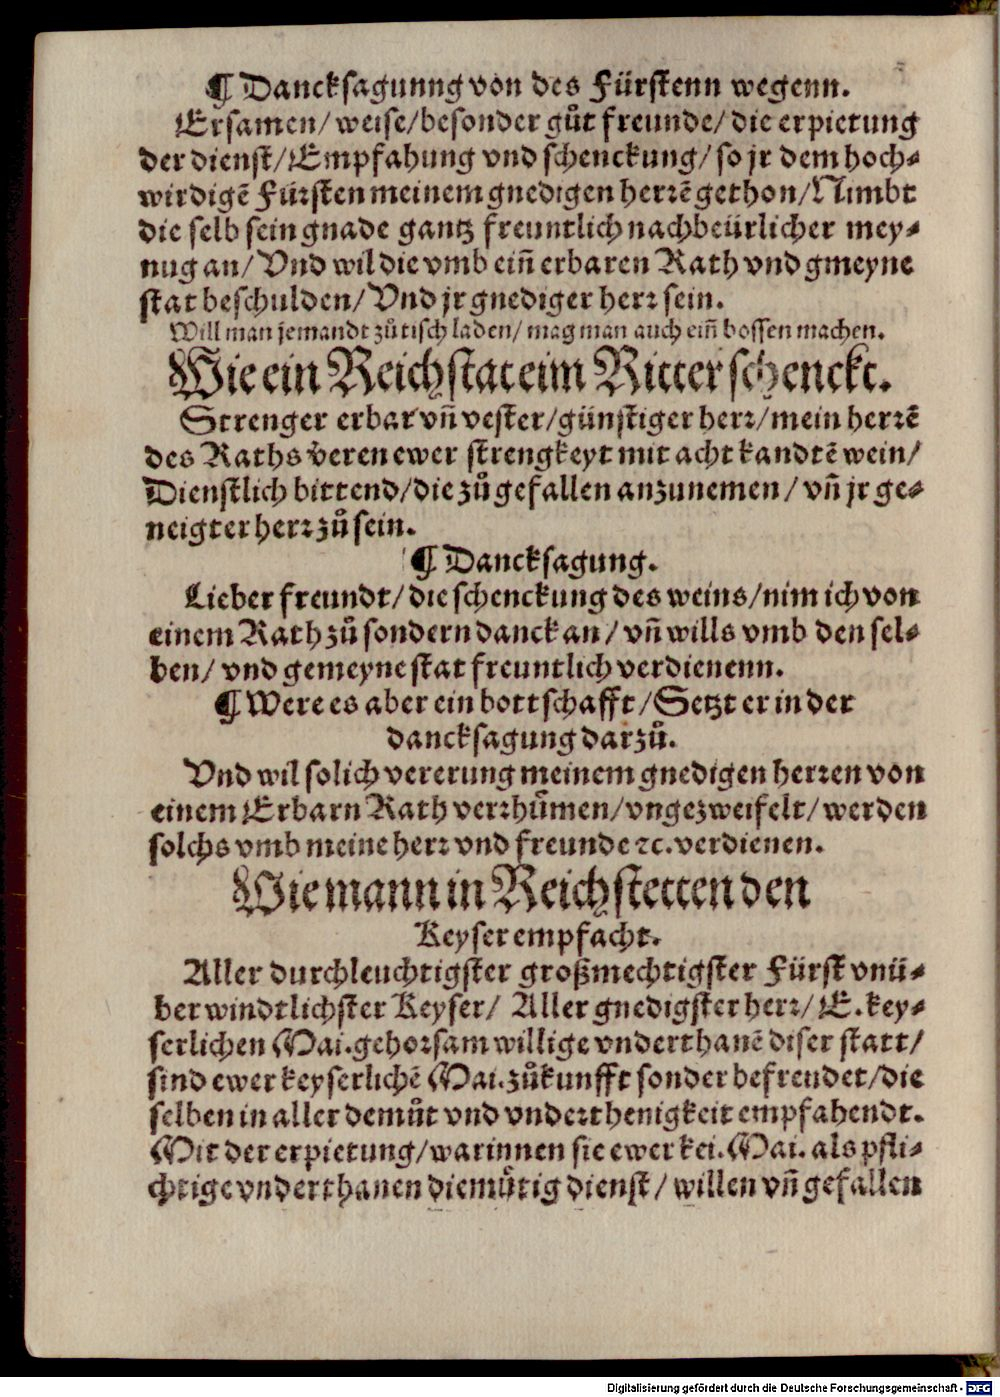 ¶ Dancksagunng von des Fürstenn wegenn.
Ersamen/ weise/ besonder gůt freunde/ die erpietung
der dienst/ Empfahung vnd schenckung/ so jr dem hoch⸗
wirdigē Fürsten meinem gnedigen herrē gethon/ Nimbt
die selb sein gnade gantz freuntlich nachbeürlicher mey⸗
nug an/ Vnd wil die vmb eiñ erbaren Rath vnd gmeyne
stat beschulden/ Vnd jr gnediger herr sein.
Will man jemandt zů tisch laden/ mag man auch eiñ bossen machen.
Wie ein Reichstat eim Ritter schenckt.
Strenger erbar vñ vester/ günstiger herr/ mein herrē
des Raths veren ewer strengkeyt mit acht kandtē wein/
Dienstlich bittend/ die zů gefallen anzunemen/ vñ jr ge⸗
neigter herr zů sein.
¶ Dancksagung.
Lieber freundt/ die schenckung des weins/ nim ich von
einem Rath zů sondern danck an/ vñ wills vmb den sel⸗
ben/ vnd gemeyne stat freuntlich verdienenn.
¶ Were es aber ein bottschafft/ Setzt er in der
dancksagung darzů.
Vnd wil solich vererung meinem gnedigen herren von
einem Erbarn Rath verrhůmen/ vngezweifelt/ werden
solchs vmb meine herr vnd freunde ꝛc. verdienen.
Wie mann in Reichstetten den
Keyser empfacht.
Aller durchleuchtigster großmechtigster Fürst vnü⸗
berwindtlichster Keyser/ Aller gnedigster herr/ E. key⸗
serlichen Mai. gehorsam willige vnderthanē diser statt/
sind ewer keyserlichē Mai. zůkunfft sonder befreudet/ die
selben in aller demůt vnd vnderthenigkeit empfahendt.
Mit der erpietung/ warinnen sie ewer kei. Mai. als pfli⸗
chtige vnderthanen diemůtig dienst/ willen vñ gefallen
Digitalisierung gefördert durch die Deutsche Forschungsgemeinschaft - DFG